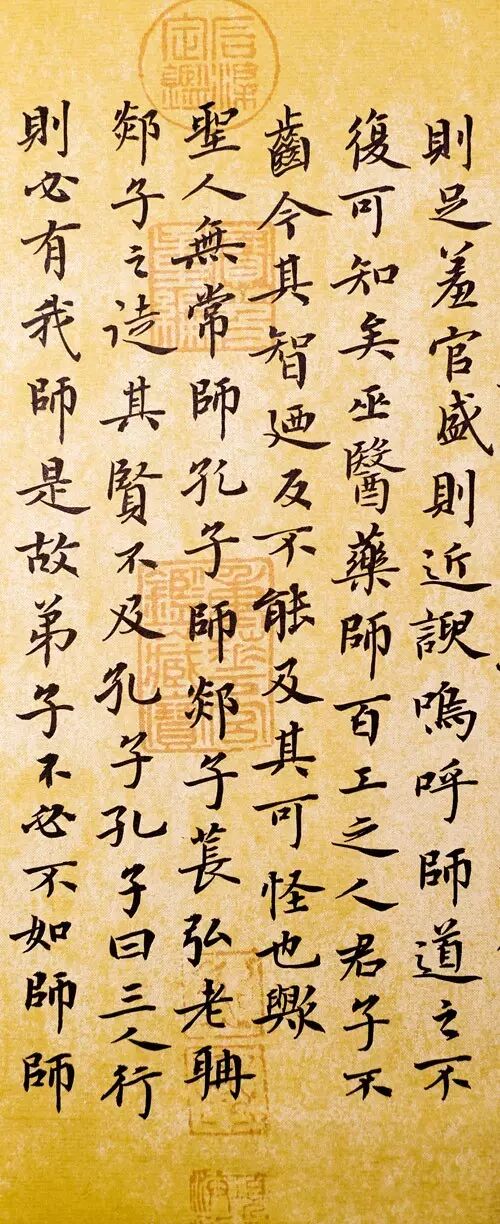 則足羞官盛則近諛嗚呼師道之不
復可知矣巫醫藥師百工之人君子不
齒今其智廼反不能及其可怪也歟
聖人無常師孔子師郯子萇弘老聃
郯子之徒其賢不及孔子孔子曰三人行
則必有我師是故弟子不必不如師師